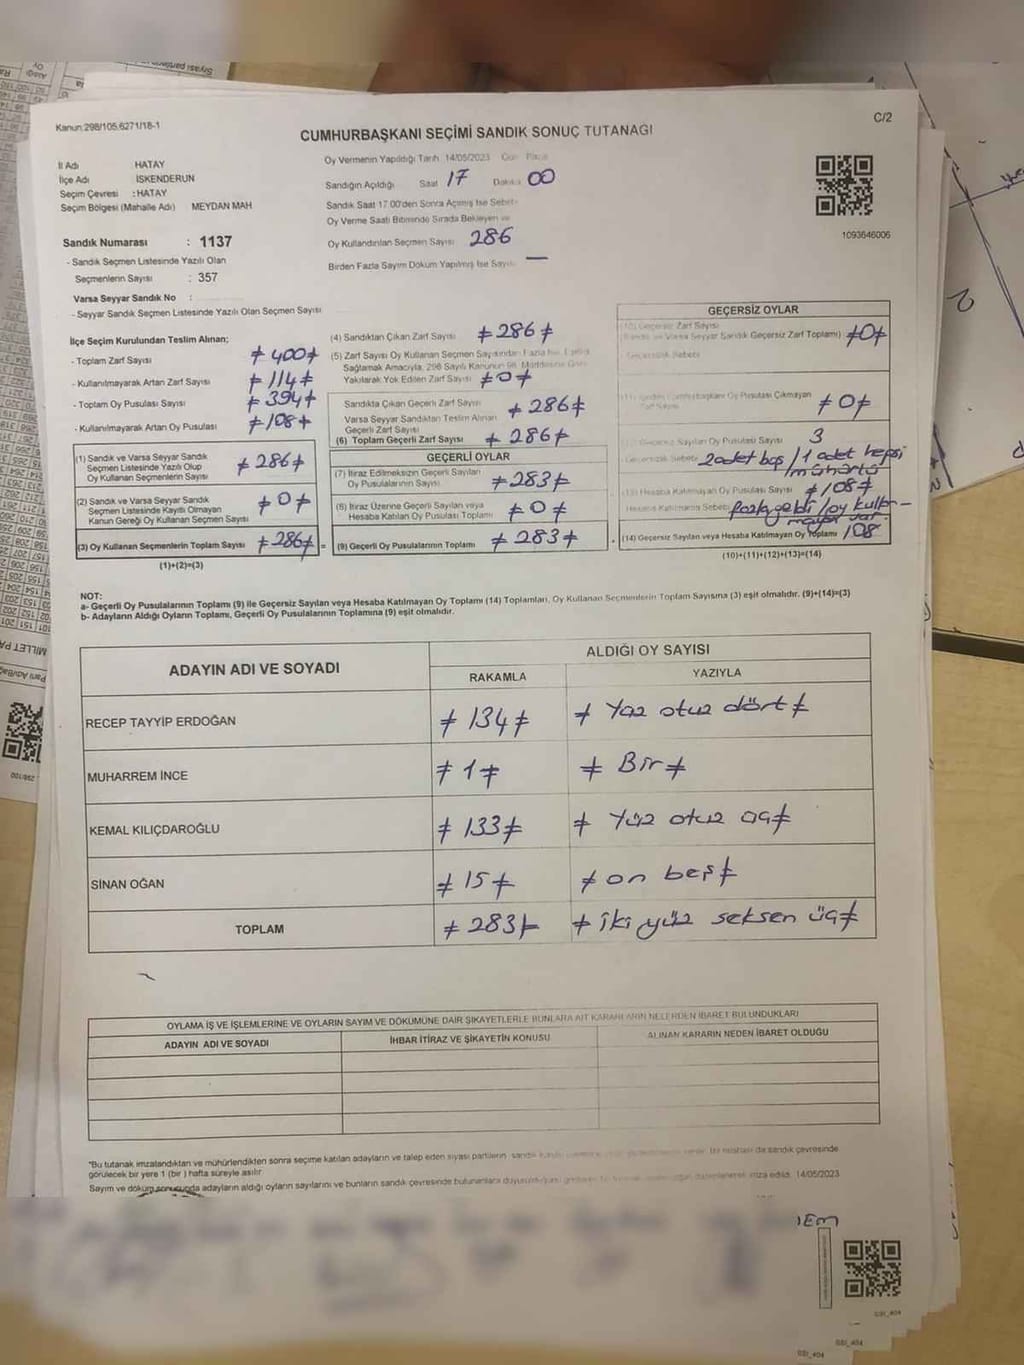 Kanun:298/105.6271/18-1
C/2
CUMHURBAŞKANI SEÇİMİ SANDIK SONUÇ TUTANAĞI
İl Adı HATAY
İlçe Adı İSKENDERUN
Seçim Çevresi : HATAY
Seçim Bölgesi (Mahalle Adı) MEYDAN MAH
Sandık Numarası : 1137
- Sandık Seçmen Listesinde Yazılı Olan
Seçmenlerin Sayısı : 357
Varsa Seyyar Sandık No :
- Seyyar Sandık Seçmen Listesinde Yazılı Olan Seçmen Sayısı
Oy Vermenin Yapıldığı Tarih 14/05/2023 Gün Pazar
Sandığın Açıldığı Saat 17 Dakika 00
Sandık Saat 17.00'den Sonra Açılmış İse Sebebi
Oy Verme Saati Bitiminde Sırada Bekleyen ve
Oy Kullandırılan Seçmen Sayısı 286
Birden Fazla Sayım Döküm Yapılmış İse Sayısı —
1093646006
İlçe Seçim Kurulundan Teslim Alınan;
- Toplam Zarf Sayısı ≠ 400 ≠
- Kullanılmayarak Artan Zarf Sayısı ≠ 114 ≠
- Toplam Oy Pusulası Sayısı ≠ 394 ≠
- Kullanılmayarak Artan Oy Pusulası ≠ 108 ≠
(1) Sandık ve Varsa Seyyar Sandık
Seçmen Listesinde Yazılı Olup
Oy Kullanan Seçmenlerin Sayısı ≠ 286 ≠
(2) Sandık ve Varsa Seyyar Sandık
Seçmen Listesinde Kayıtlı Olmayan
Kanun Gereği Oy Kullanan Seçmen Sayısı ≠ 0 ≠
(3) Oy Kullanan Seçmenlerin Toplam Sayısı ≠ 286 ≠
(1)+(2)=(3)
(4) Sandıktan Çıkan Zarf Sayısı ≠ 286 ≠
(5) Zarf Sayısı Oy Kullanan Seçmen Sayısından Fazla İse
Sağlamak Amacıyla, 298 Sayılı Kanunun 98. Maddesine Göre
Yakılarak Yok Edilen Zarf Sayısı ≠ 0 ≠
Sandıkta Çıkan Geçerli Zarf Sayısı ≠ 286 ≠
Varsa Seyyar Sandıktan Teslim Alınan
Geçerli Zarf Sayısı
(6) Toplam Geçerli Zarf Sayısı ≠ 286 ≠
GEÇERLİ OYLAR
(7) İtiraz Edilmeksizin Geçerli Sayılan
Oy Pusulalarının Sayısı ≠ 283 ≠
(8) İtiraz Üzerine Geçerli Sayılan veya
Hesaba Katılan Oy Pusulası Toplamı ≠ 0 ≠
(9) Geçerli Oy Pusulalarının Toplamı ≠ 283 ≠
GEÇERSİZ OYLAR
(10) Geçersiz Zarf Sayısı
(Sandık ve Varsa Seyyar Sandık Geçersiz Zarf Toplamı) ≠ 0 ≠
Geçersizlik Sebebi
Oy Pusulası Çıkmayan
Zarf Sayısı ≠ 0 ≠
Geçersiz Sayılan Oy Pusulası Sayısı 3
Geçersizlik Sebebi 2 adet boş / 1 adet hepsi
mühürlü
(13) Hesaba Katılmayan Oy Pusulası Sayısı ≠ 108 ≠
Hesaba Katılmama Sebebi fazla geldi / oy kullan-
mayan var.
(14) Geçersiz Sayılan veya Hesaba Katılmayan Oy Toplamı 108
(10)+(11)+(12)+(13)=(14)
NOT:
a- Geçerli Oy Pusulalarının Toplamı (9) ile Geçersiz Sayılan veya Hesaba Katılmayan Oy Toplamı (14) Toplamları, Oy Kullanan Seçmenlerin Toplam Sayısına (3) eşit olmalıdır. (9)+(14)=(3)
b- Adayların Aldığı Oyların Toplamı, Geçerli Oy Pusulalarının Toplamına (9) eşit olmalıdır.
ADAYIN ADI VE SOYADI
ALDIĞI OY SAYISI
RAKAMLA YAZIYLA
RECEP TAYYİP ERDOĞAN ≠ 134 ≠ ≠ Yüz otuz dört ≠
MUHARREM İNCE ≠ 1 ≠ ≠ Bir ≠
KEMAL KILIÇDAROĞLU ≠ 133 ≠ ≠ Yüz otuz üç ≠
SİNAN OĞAN ≠ 15 ≠ ≠ on beş ≠
TOPLAM ≠ 283 ≠ ≠ iki yüz seksen üç ≠
OYLAMA İŞ VE İŞLEMLERİNE VE OYLARIN SAYIM VE DÖKÜMÜNE DAİR ŞİKAYETLERLE BUNLARA AİT KARARLARIN NELERDEN İBARET BULUNDUKLARI
ADAYIN ADI VE SOYADI İHBAR İTİRAZ VE ŞİKAYETİN KONUSU ALINAN KARARIN NEDEN İBARET OLDUĞU
"Bu tutanak imzalandıktan ve mühürlendikten sonra seçime katılan adayların ve talep eden siyasi partilerin
görülecek bir yere 1 (bir) hafta süreyle asılır.
Sayım ve döküm sonucunda adayların aldığı oyların sayılarını ve bunların sandık çevresinde bulunanlara imza edildi. 14/05/2023